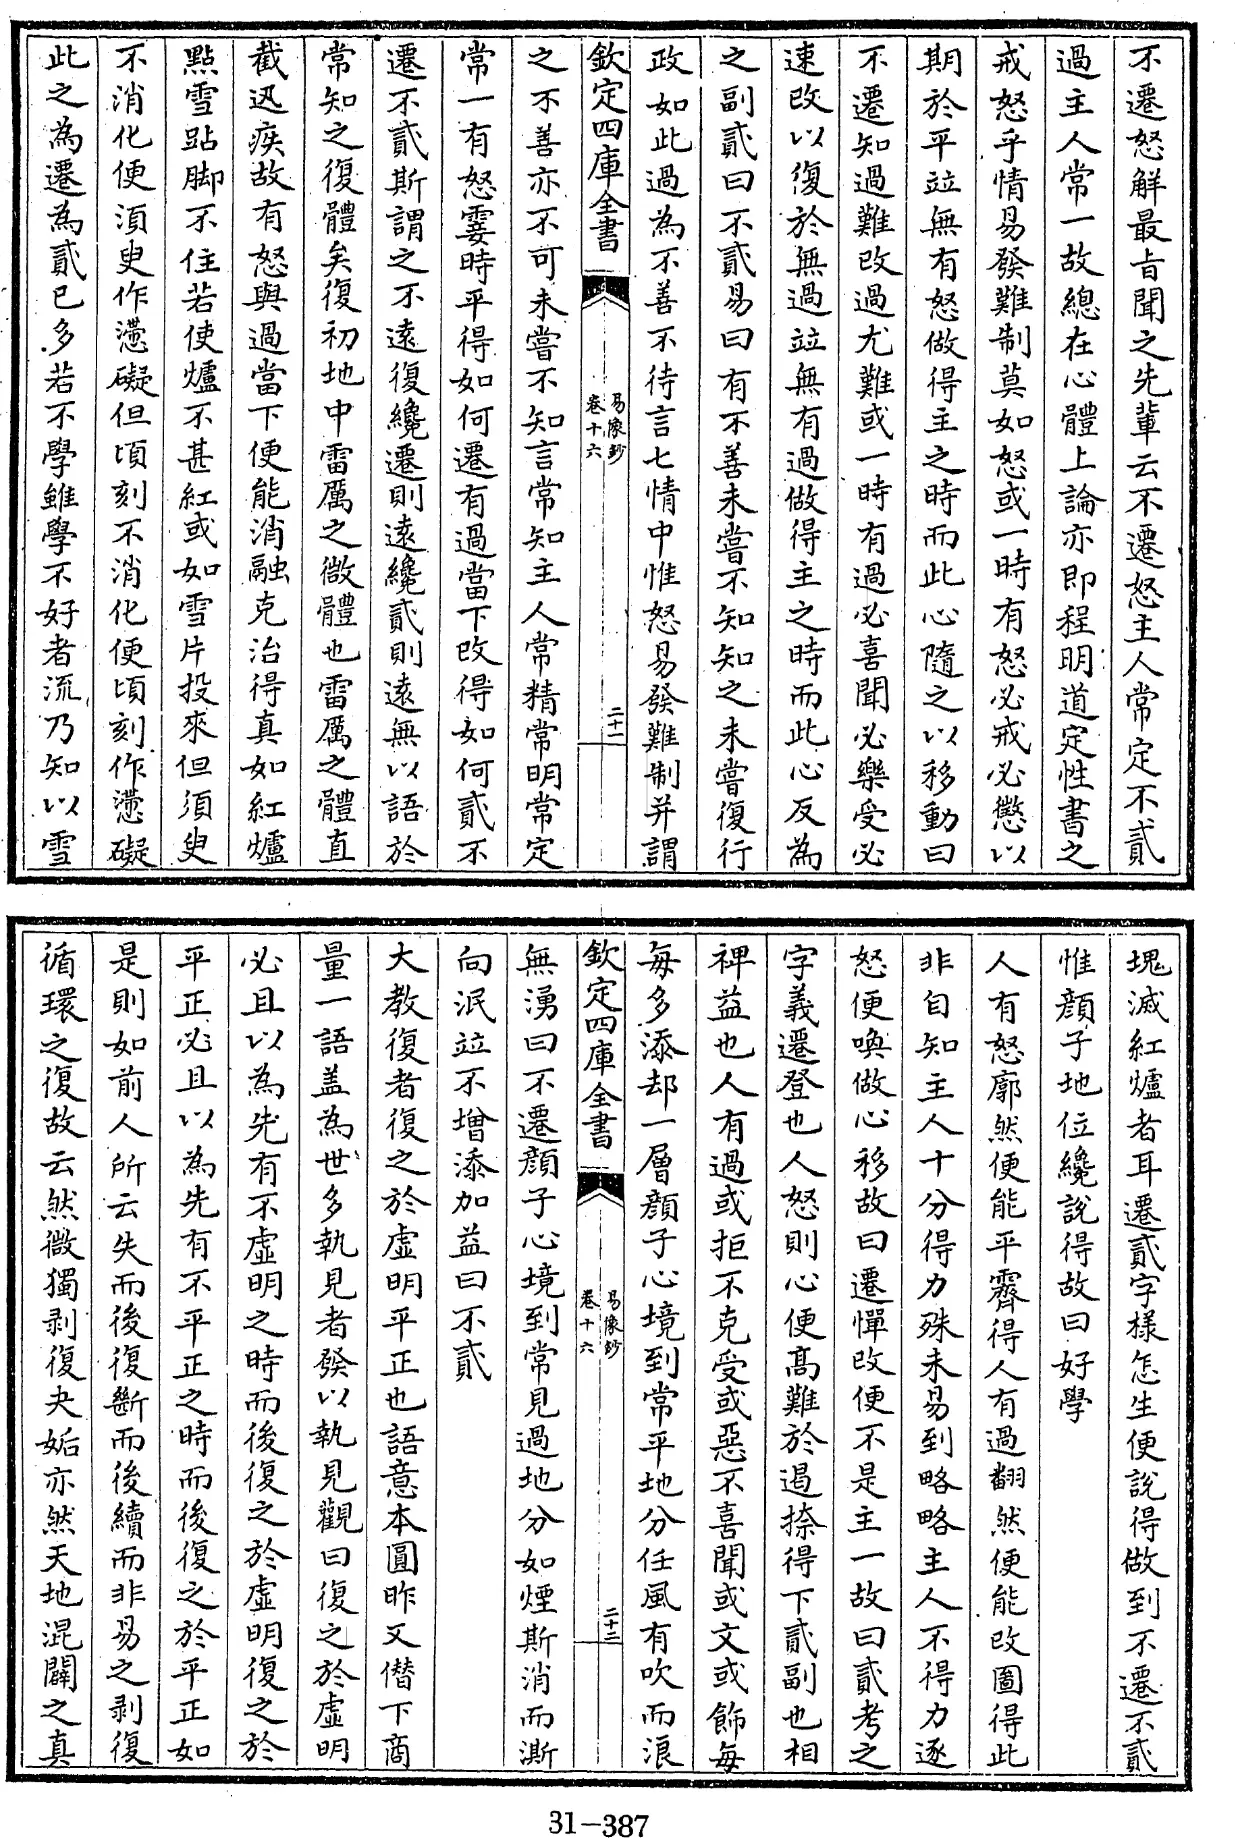 不遷怒解最旨聞之先輩云不遷怒主人常定不貳
過主人常一故總在心體上論亦即程明道定性書之
戒怒乎情易發難制莫如怒或一時有怒必戒必懲以
期於平竝無有怒做得主之時而此心隨之以移動曰
不遷知過難改過尤難或一時有過必喜聞必樂受必
速改以復於無過竝無有過做得主之時而此心反為
之副貳曰不貳易曰有不善未嘗不知知之未嘗復行
政如此過為不善不待言七情中惟怒易發難制并謂
欽定四庫全書
易像鈔
卷十六
二十一
之不善亦不可未嘗不知言常知主人常精常明常定
常一有怒霎時平得如何遷有過當下改得如何貳不
遷不貳斯謂之不遠復纔遷則遠纔貳則遠無以語於
常知之復體矣復初地中雷厲之微體也雷厲之體直
截迅疾故有怒與過當下便能消融克治得真如紅爐
點雪跕脚不住若使爐不甚紅或如雪片投來但須臾
不消化便須臾作濨礙但頃刻不消化便頃刻作濨礙
此之為遷為貳已多若不學雖學不好者流乃知以雪
塊滅紅爐者耳遷貳字樣怎生便說得做到不遷不貳
惟顔子地位纔說得故曰好學
人有怒廓然便能平霽得人有過翻然便能改圖得此
非自知主人十分得力殊未易到略略主人不得力逐
怒便喚做心移故曰遷憚改便不是主一故曰貳考之
字義遷登也人怒則心便高難於遏捺得下貳副也相
裨益也人有過或拒不克受或惡不喜聞或文或飾每
每多添却一層顔子心境到常平地分任風有吹而浪
欽定四庫全書
易像鈔
卷十六
二十二
無湧曰不遷顔子心境到常見過地分如煙斯消而澌
向泯竝不增添加益曰不貳
大教復者復之於虛明平正也語意本圓昨又僭下商
量一語盖為世多執見者發以執見觀曰復之於虛明
必且以為先有不虛明之時而後復之於虛明復之於
平正必且以為先有不平正之時而後復之於平正如
是則如前人所云失而後復斷而後續而非易之剥復
循環之復故云然微獨剥復夬姤亦然天地混闢之真
31-387